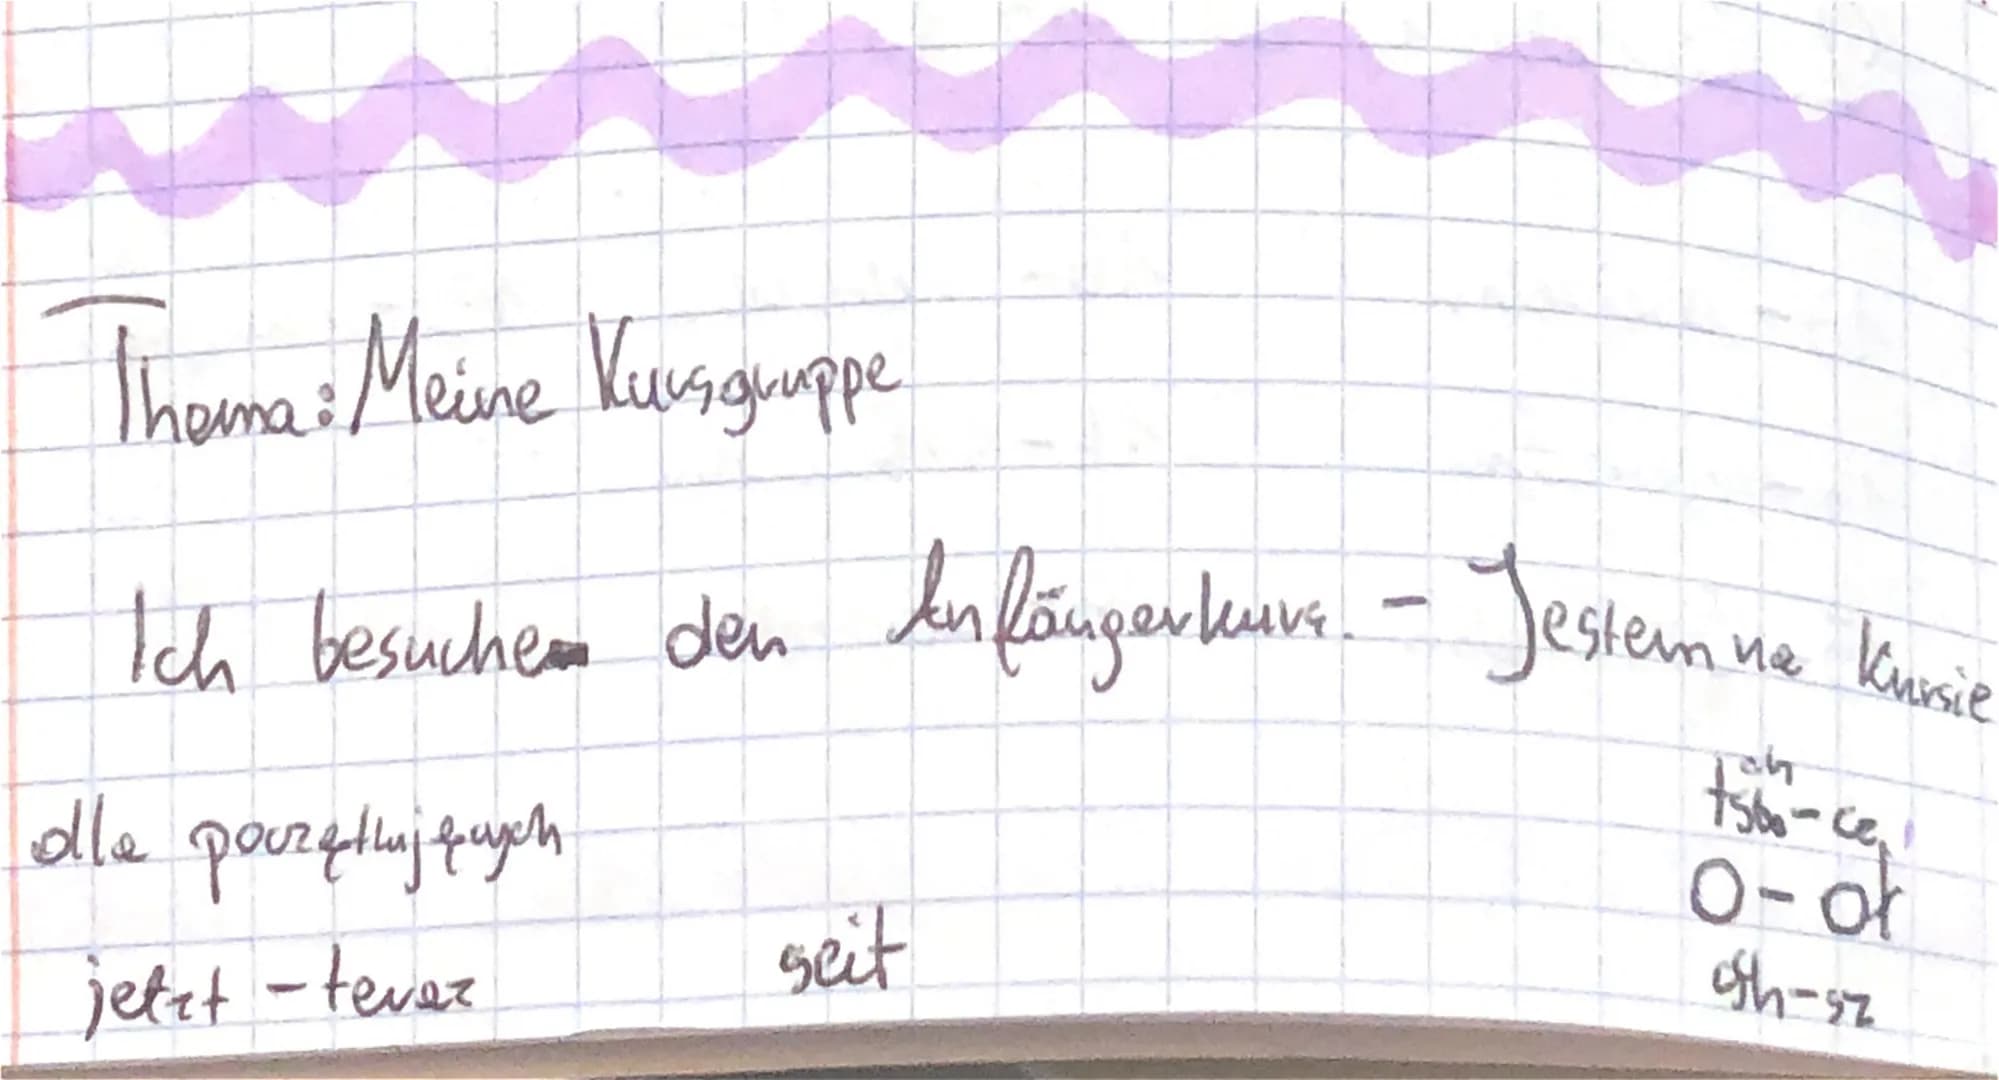 Thema: Meine Kursgruppe
Ich besuche den Anfängerkurs. - Jestem na kursie
dla początkujących
jetzt - teraz seit
O - ot
sch - sz